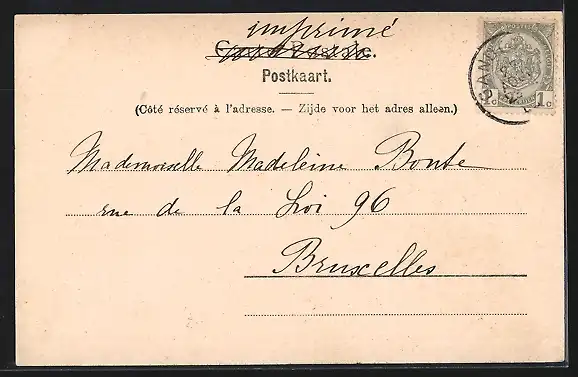 imprimé
Carte Postale.
Postkaart.
(Côté réservé à l'adresse. — Zijde voor het adres alleen.)
Mademoiselle Madeleine Bonte
rue de la Loi 96
Bruxelles
1c 1c